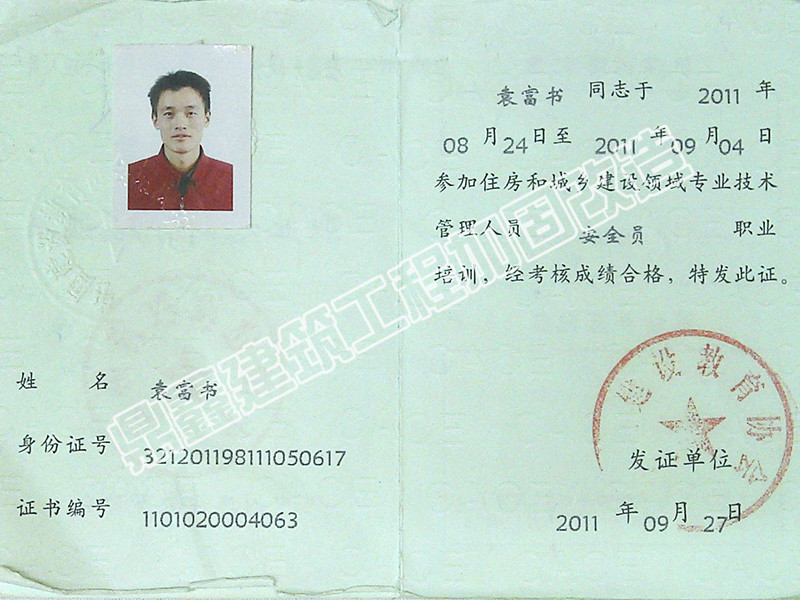 姓 名 袁富书
身份证号 321201198111050617
证书编号 1101020004063
袁富书 同志于 2011 年
08 月 24 日至 2011 年 09 月 04 日
参加住房和城乡建设领域专业技术
管理人员 安全员 职业
培训，经考核成绩合格，特发此证。
建设教育协会
发证单位
2011 年 09 月 27 日
鼎鑫建筑工程加固改造